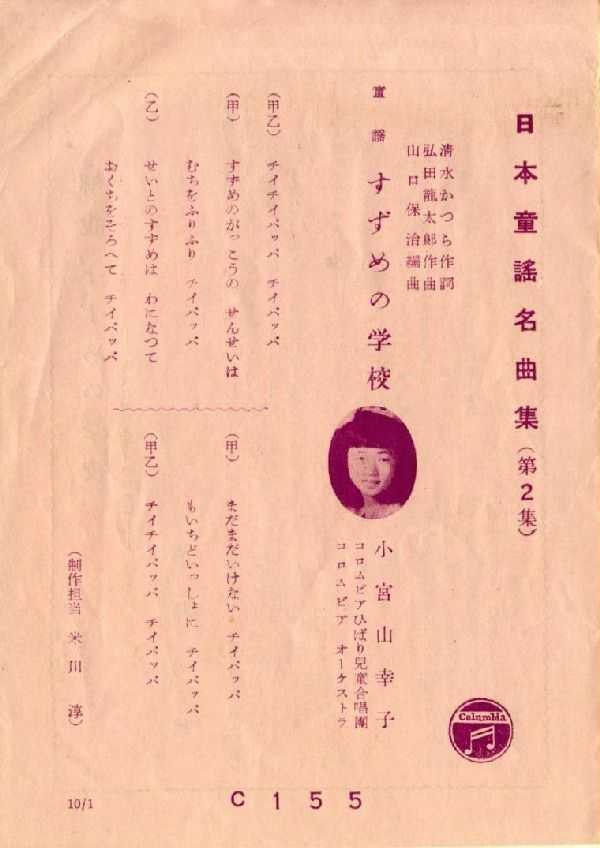 日本童謠名曲集（第2集）
清水かつら作詞
弘田龍太郎作曲
山口保治編曲
童謠 すずめの学校
小宮山幸子
コロムビアひばり兒童合唱團
コロムビア オーケストラ
（甲乙） チイチイパッパ チイパッパ
（甲） すずめのがっこうの せんせいは
むちをふりふり チイパッパ
（乙） せいとのすずめは わになつて
おくちをそろへて チイパッパ
（甲） まだまだいけない チイパッパ
もいちどいっしょに チイパッパ
（甲乙） チイチイパッパ チイパッパ
（制作担当 米川 淳）
Columbia
C155
10/1